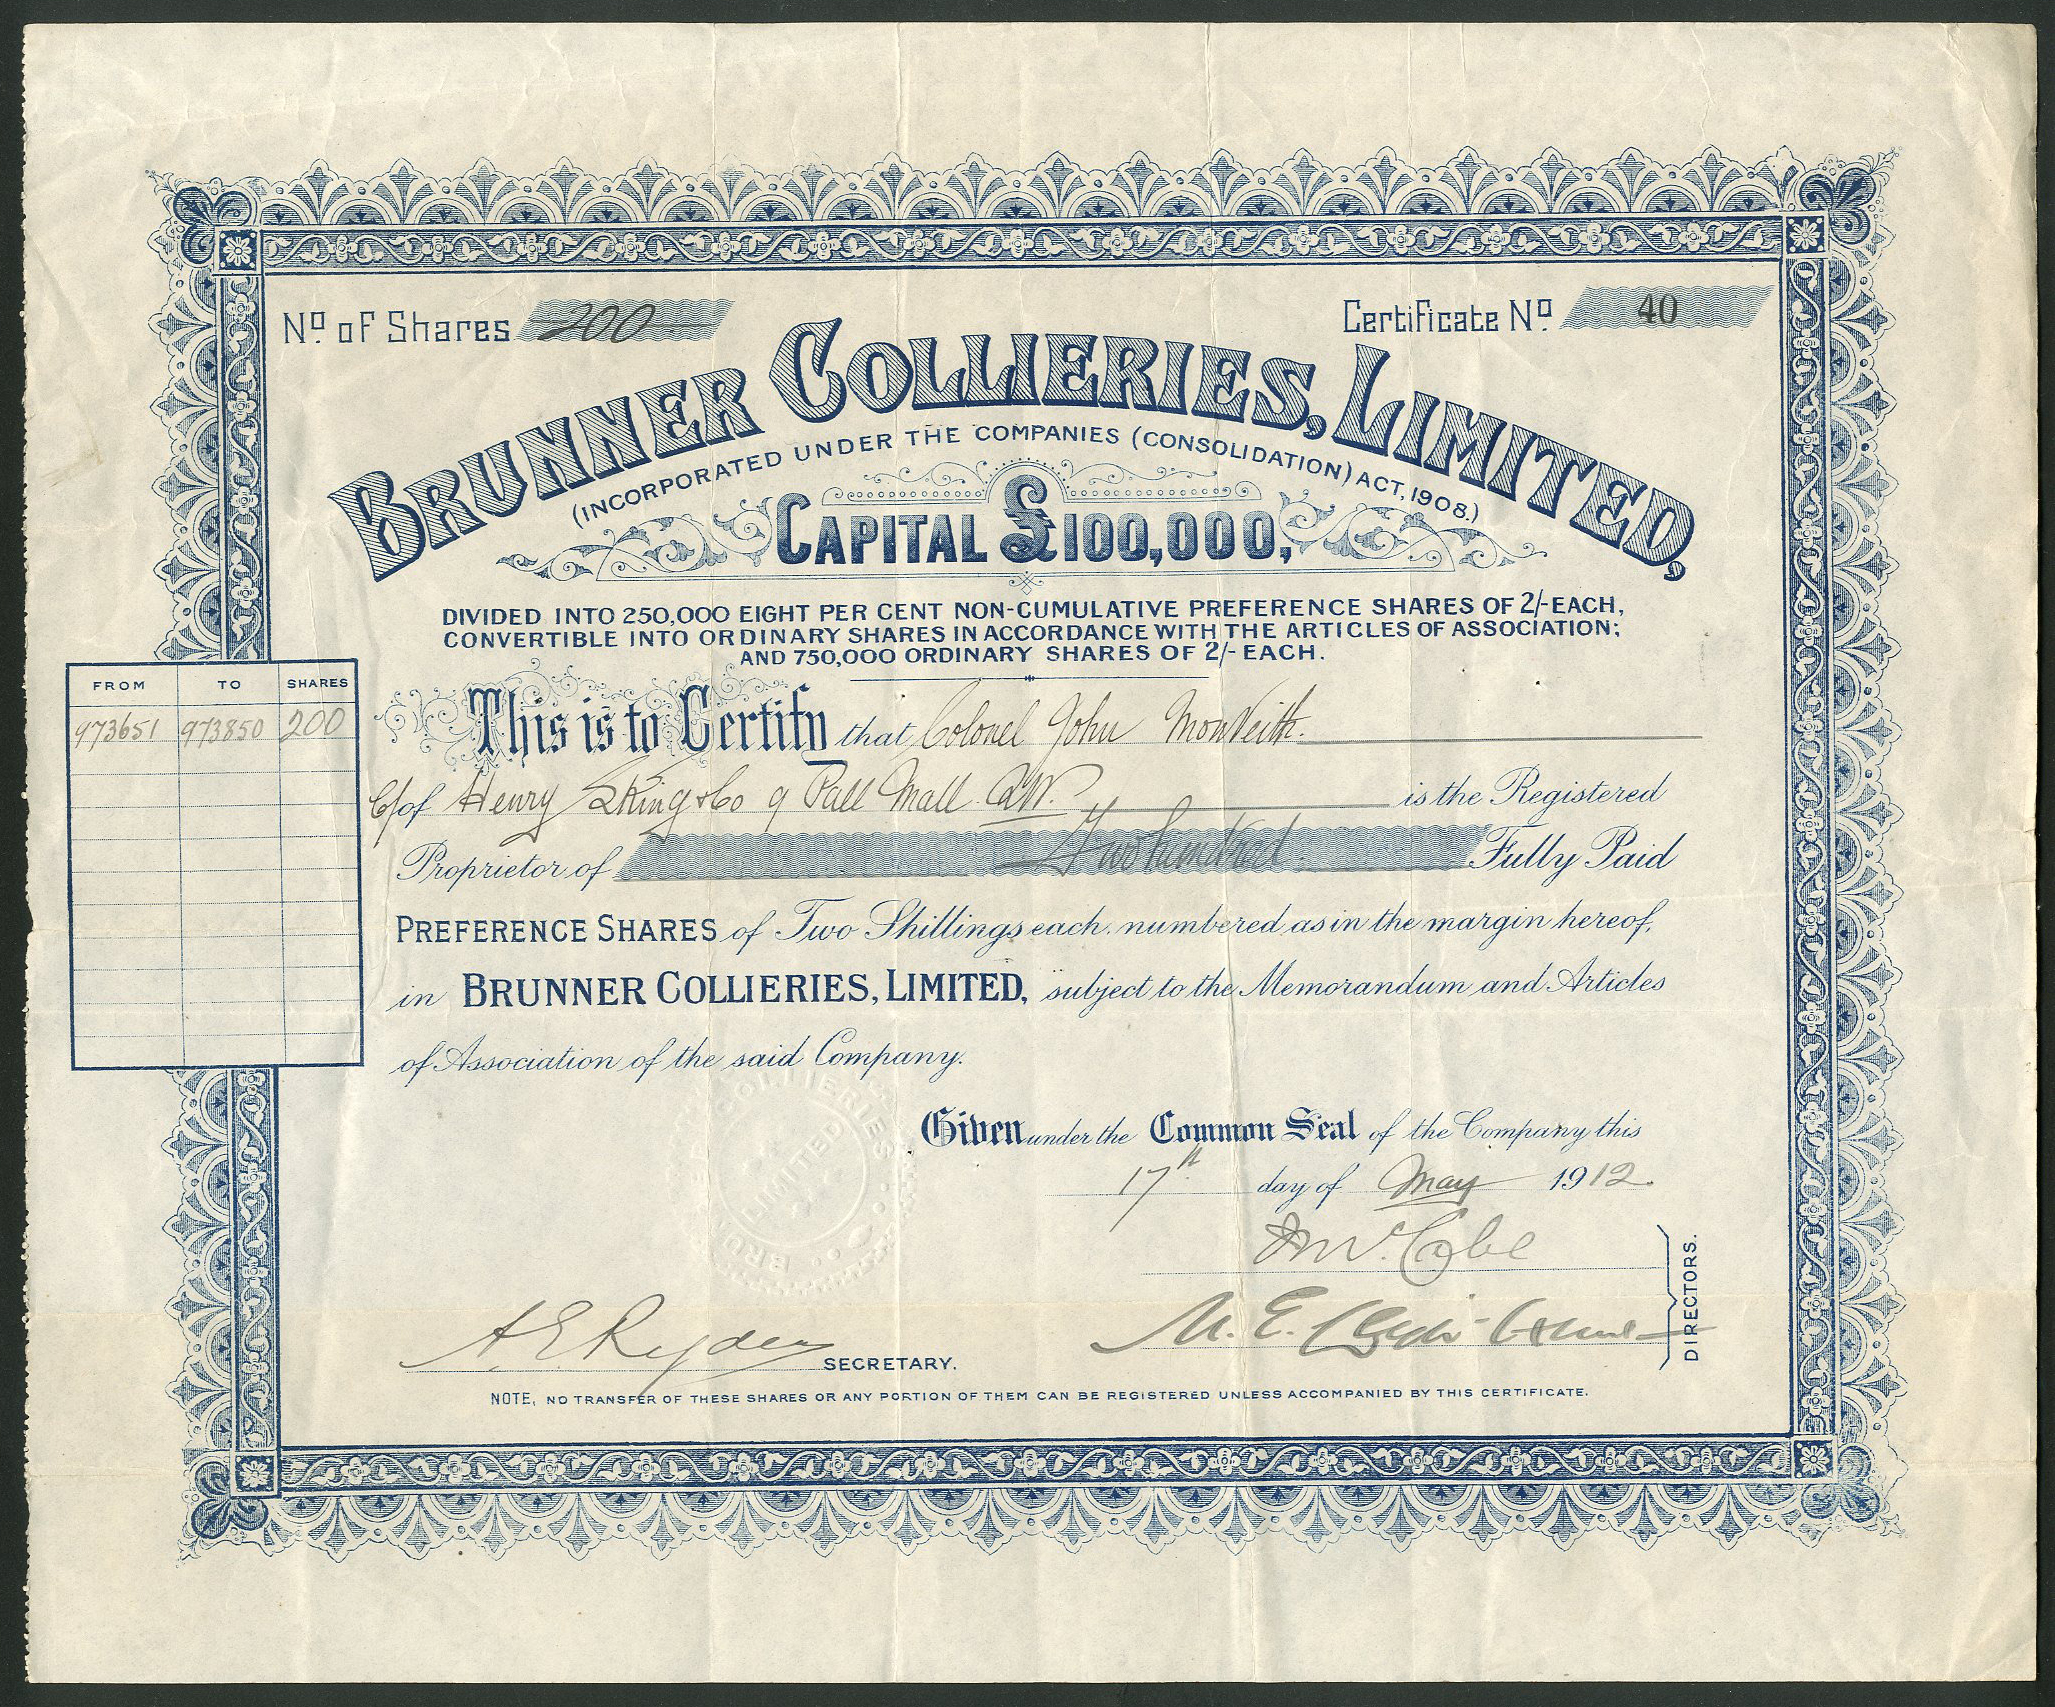 No. of Shares 200
Certificate No. 40
BRUNNER COLLIERIES, LIMITED,
(INCORPORATED UNDER THE COMPANIES (CONSOLIDATION) ACT, 1908.)
CAPITAL £100,000,
DIVIDED INTO 250,000 EIGHT PER CENT NON-CUMULATIVE PREFERENCE SHARES OF 2/- EACH,
CONVERTIBLE INTO ORDINARY SHARES IN ACCORDANCE WITH THE ARTICLES OF ASSOCIATION;
AND 750,000 ORDINARY SHARES OF 2/- EACH.
FROM TO SHARES
973651 973850 200
This is to Certify that Colonel John Monteith.
C/of Henry S King & Co 9 Pall Mall SW. is the Registered
Proprietor of Two hundred Fully Paid
PREFERENCE SHARES of Two Shillings each, numbered as in the margin hereof,
in BRUNNER COLLIERIES, LIMITED, subject to the Memorandum and Articles
of Association of the said Company.
BRUNNER COLLIERIES
LIMITED
Given under the Common Seal of the Company this
17th day of May 1912.
DIRECTORS.
A E Ryden SECRETARY.
NOTE, NO TRANSFER OF THESE SHARES OR ANY PORTION OF THEM CAN BE REGISTERED UNLESS ACCOMPANIED BY THIS CERTIFICATE.